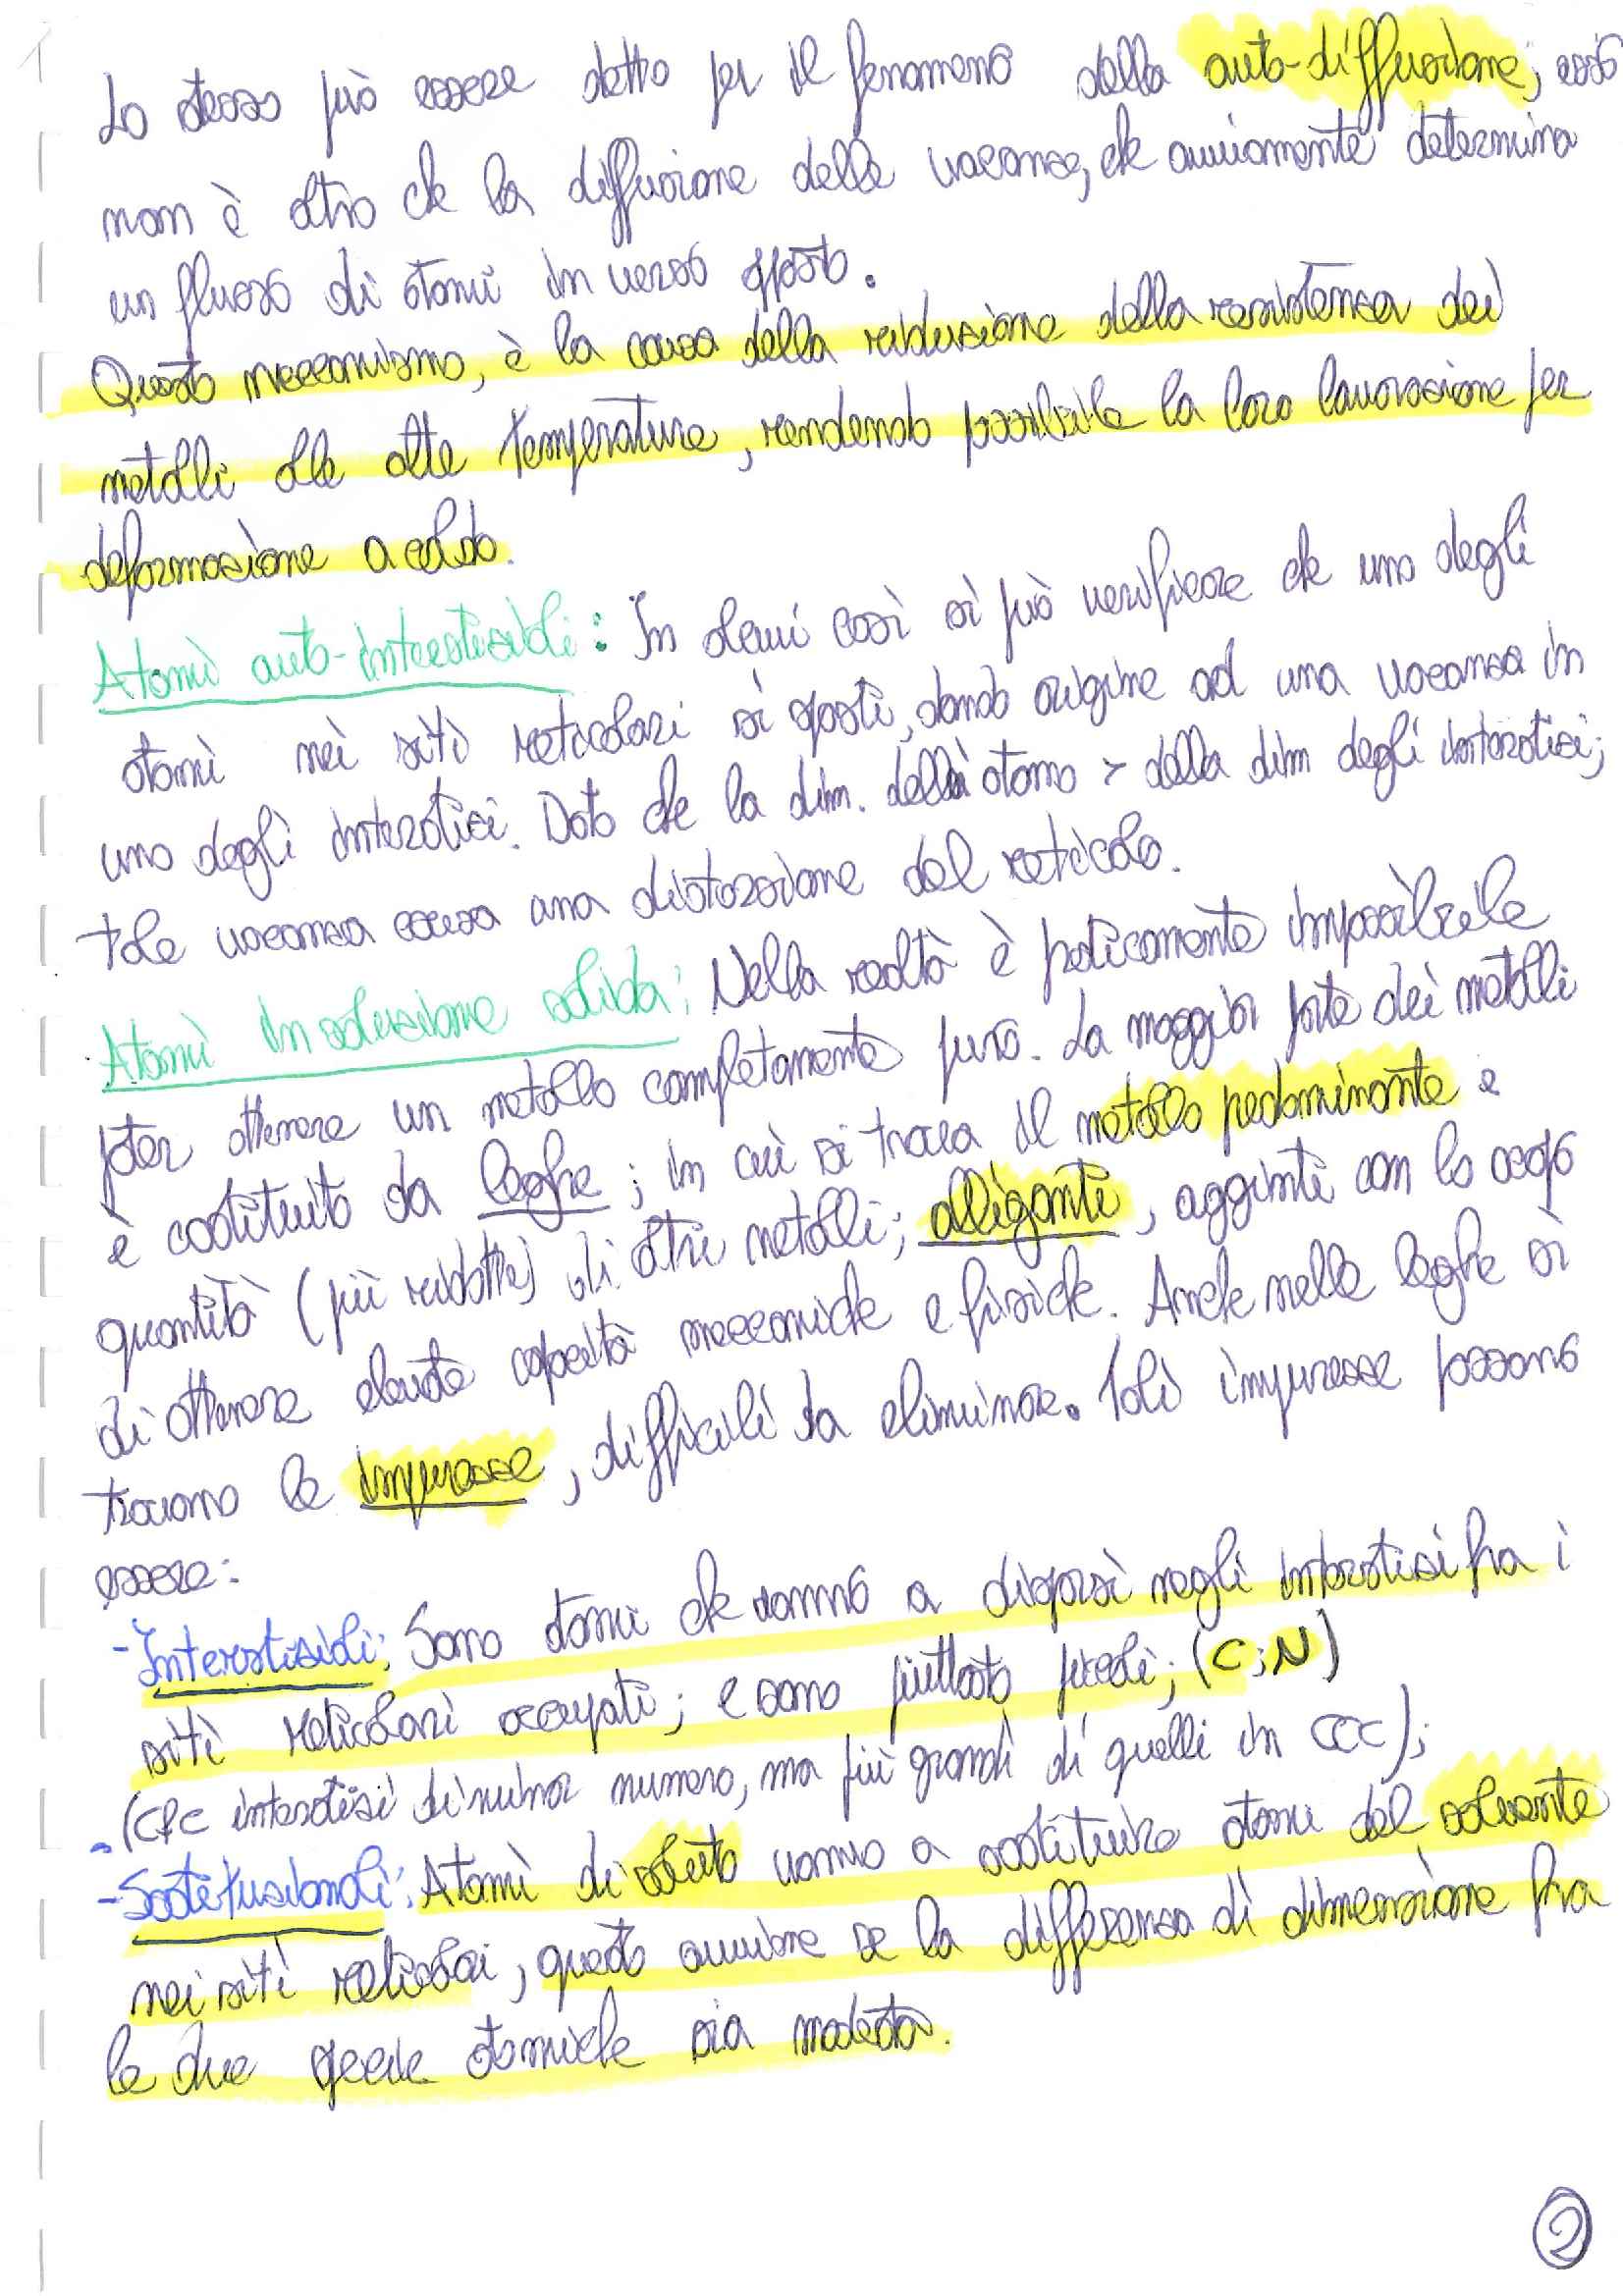 Lo stesso può essere detto per il fenomeno della auto-diffusione; essa
non è altro che la diffusione delle vacanze, che ovviamente determina
un flusso di atomi in verso opposto.
Questo meccanismo, è la causa della riduzione della resistenza dei
metalli alle alte temperature, rendendo possibile la loro lavorazione per
deformazione a caldo.
Atomi auto-interstiziali: In alcuni casi si può verificare che uno degli
atomi nei siti reticolari si sposti, dando origine ad una vacanza in
uno degli interstizi. Dato che la dim. dell'atomo > della dim degli interstizi;
tale vacanza causa una distorsione del reticolo.
Atomi in soluzione solida: Nella realtà è praticamente impossibile
poter ottenere un metallo completamente puro. La maggior parte dei metalli
è costituito da leghe; in cui si trova il metallo predominante e
quantità (più ridotte) di altri metalli; alliganti, aggiunti con lo scopo
di ottenere elevate capacità meccaniche e fisiche. Anche nelle leghe si
trovano le impurezze, difficili da eliminare. Tali impurezze possono
essere:
-Interstiziali: Sono atomi che vanno a disporsi negli interstizi fra i
siti reticolari occupati; e sono piuttosto piccoli; (C; N)
(CFC interstizi di minor numero, ma più grandi di quelli in CCC);
-Sostituzionali: Atomi di soluto vanno a sostituire atomi del solvente
nei siti reticolari, questo avviene se la differenza di dimensione fra
le due specie atomiche sia modesta.
2